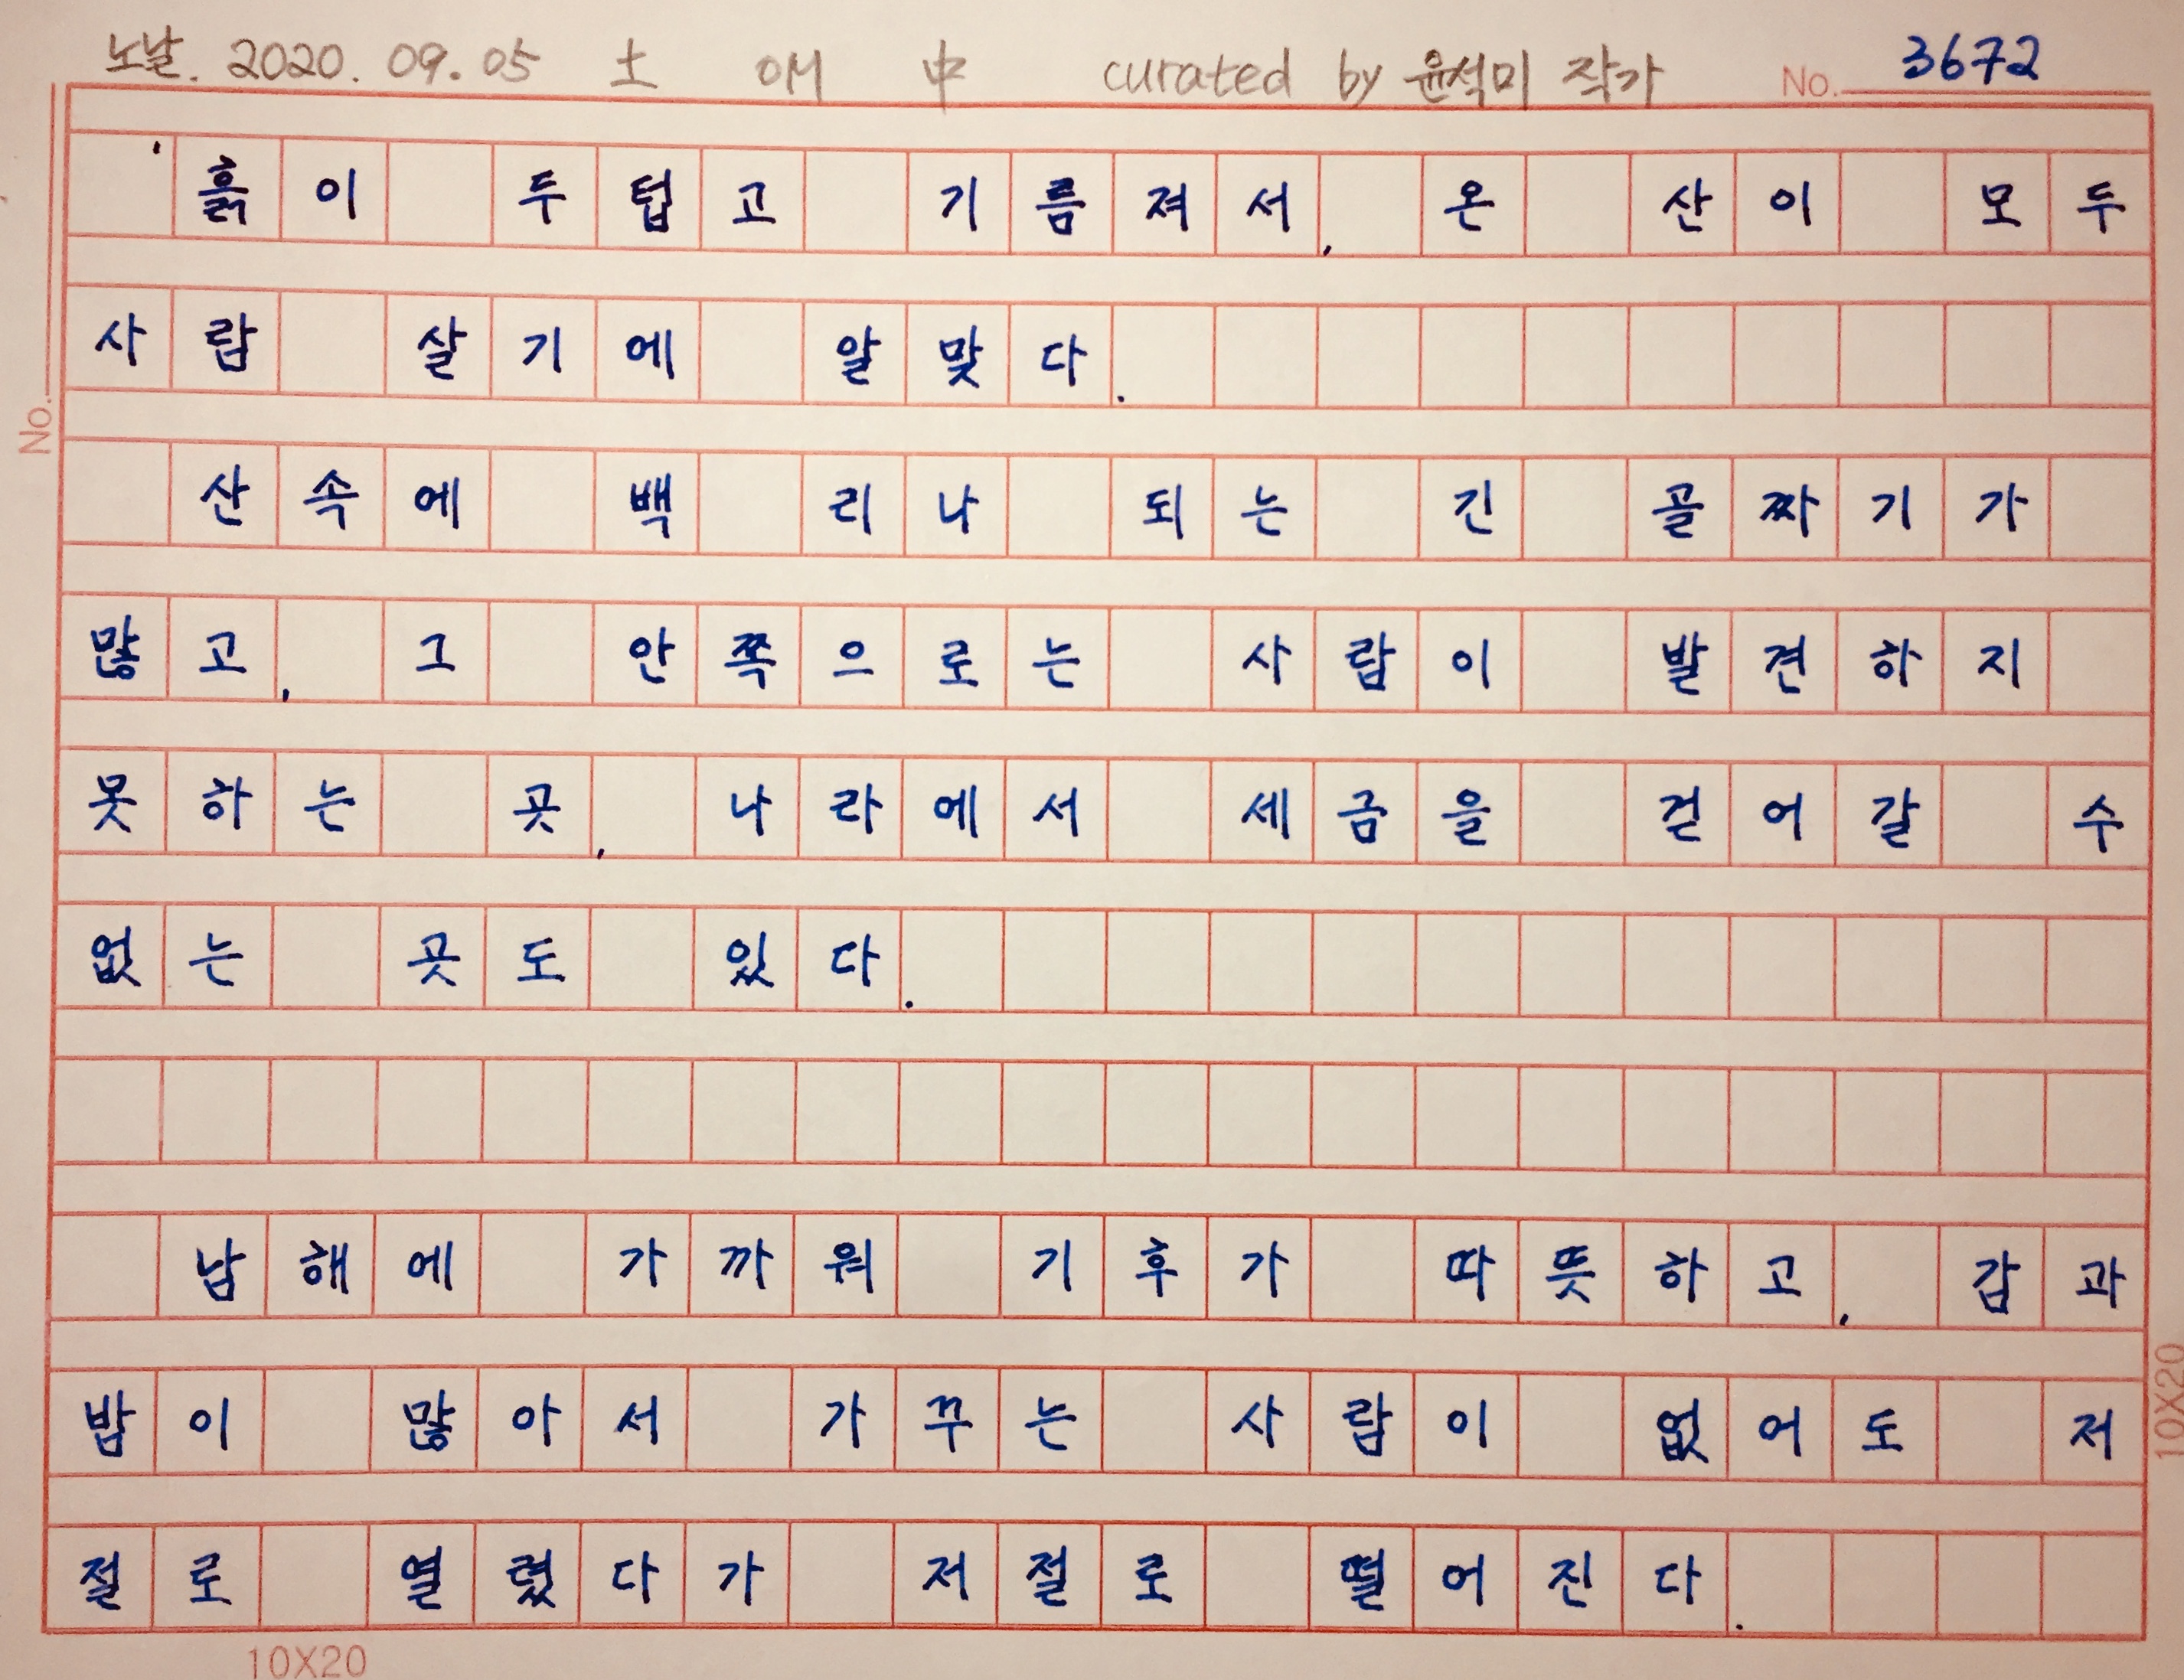 노날. 2020. 09. 05 土 OM 中 curated by 윤석미 작가 No. 3672
' 흙이 두텁고 기름져서, 온 산이 모두
사람 살기에 알맞다.
산속에 백 리나 되는 긴 골짜기가
많고, 그 안쪽으로는 사람이 발견하지
못하는 곳, 나라에서 세금을 걷어갈 수
없는 곳도 있다.
남해에 가까워 기후가 따뜻하고, 감과
밤이 많아서 가꾸는 사람이 없어도 저
절로 열렸다가 저절로 떨어진다.
No.
10X20
10X20